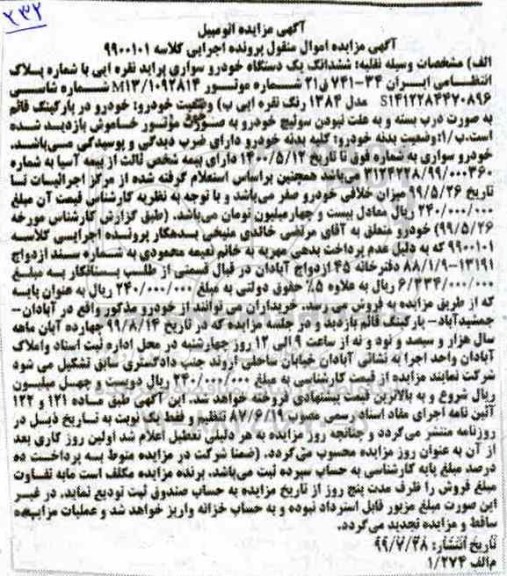 ۲۳۲
آگهی مزایده اتومبیل
آگهی مزایده اموال منقول پرونده اجرایی کلاسه ۹۹۰۰۱۰۱
الف) مشخصات وسیله نقلیه: ششدانگ یک دستگاه خودرو سواری پراید نقره ایی با شماره پلاک
انتظامی ایران ۳۴-۷۴۱ ق ۲۱ شماره موتور M۱۳/۱۰۹۲۸۱۳ شماره شاسی
S۱۴۱۲۲۸۴۴۷۰۸۹۶ مدل ۱۳۸۴ رنگ نقره ایی ب) وضعیت خودرو: خودرو در پارکینگ قائم
به صورت درب بسته و به علت نبودن سوئیچ خودرو به صورت موتور خاموش بازدید شده
است.ب/۱: وضعیت بدنه خودرو: کلیه بدنه خودرو دارای ضرب دیدگی و پوسیدگی می‌باشد.
خودرو سواری به شماره فوق تا تاریخ ۱۴۰۰/۵/۱۲ دارای بیمه شخص ثالث از بیمه آسیا به شماره
۳۱۲۴۲۲۸/۹۹/۰۰۰۳۶۰ می‌باشد همچنین براساس استعلام گرفته شده از مرکز اجرائیات تا
تاریخ ۹۹/۵/۲۶ میزان خلافی خودرو صفر می‌باشد و با توجه به نظریه کارشناس قیمت آن مبلغ
۲۴۰/۰۰۰/۰۰۰ ریال معادل بیست و چهارمیلیون تومان می‌باشد. (طبق گزارش کارشناس مورخه
۹۹/۵/۲۶) خودرو متعلق به آقای مرتضی خالدی منیخی بدهکار پرونده اجرایی کلاسه
۹۹۰۰۱۰۱ که به دلیل عدم پرداخت بدهی مهریه به خانم نعیمه محمودی به شماره سند ازدواج
۱۳۱۹۱-۸۸/۱/۹ دفترخانه ۴۵ ازدواج آبادان در قبال قسمتی از طلب بستانکار به مبلغ
۶/۳۳۴/۰۰۰/۰۰۰ ریال به علاوه ۵٪ حقوق دولتی به مبلغ ۲۴۰/۰۰۰/۰۰۰ ریال به عنوان پایه
که از طریق مزایده به فروش می رسد. خریداران می توانند از خودرو مذکور واقع در آبادان-
جمشیدآباد- پارکینگ قائم بازدید و در جلسه مزایده که در تاریخ ۹۹/۸/۱۴ چهارده آبان ماهه
سال هزار و سیصد و نود و نه از ساعت ۹ الی ۱۲ روز چهارشنبه در محل اداره ثبت اسناد واملاک
آبادان واحد اجرا به نشانی آبادان خیابان ساحلی اروند جنب دادگستری سابق تشکیل می شود
شرکت نمایند مزایده از قیمت کارشناسی به مبلغ ۲۴۰/۰۰۰/۰۰۰ ریال دویست و چهل میلیون
ریال شروع و به بالاترین قیمت پیشنهادی فروخته خواهد شد. این آگهی طبق ماده ۱۲۱ و ۱۲۲
آئین نامه اجرای مفاد اسناد رسمی مصوب ۸۷/۶/۱۹ تنظیم و فقط یک نوبت به تاریخ ذیل در
روزنامه منتشر می‌گردد و چنانچه روز مزایده به هر دلیلی تعطیل اعلام شد اولین روز کاری بعد
از آن به عنوان روز مزایده محسوب می‌گردد. (ضمنا شرکت در مزایده منوط به پرداخت ده
درصد مبلغ پایه کارشناسی به حساب سپرده ثبت می‌باشد. برنده مزایده مکلف است مابه تفاوت
مبلغ فروش را ظرف مدت پنج روز از تاریخ مزایده به حساب صندوق ثبت تودیع نماید. در غیر
این صورت مبلغ مزبور قابل استرداد نبوده و به حساب خزانه واریز خواهد شد و عملیات مزایده
ساقط و مزایده تجدید می‌گردد.
تاریخ انتشار: ۹۹/۷/۲۸
م‌الف ۱/۲۷۴